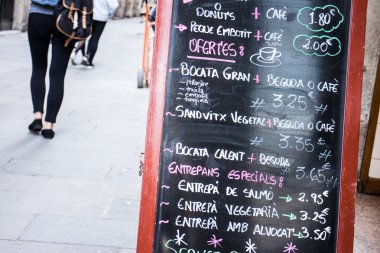 DONUTS + CAFÈ 1.80€
PEQUE EMBOTIT + CAFÈ 2.00€
OFERTES!
BOCATA GRAN + BEGUDA O CAFÈ
embotit
# 3.25 #
SANDVITX VEGETAL + BEGUDA O CAFÈ
BOCATA CALENT + BEGUDA
ENTREPANS ESPECIALS!
ENTREPÀ DE SALMÓ 2.95€
ENTREPÀ VEGETARIÀ 3.25€
ENTREPÀ AMB ALVOCAT 3.50€